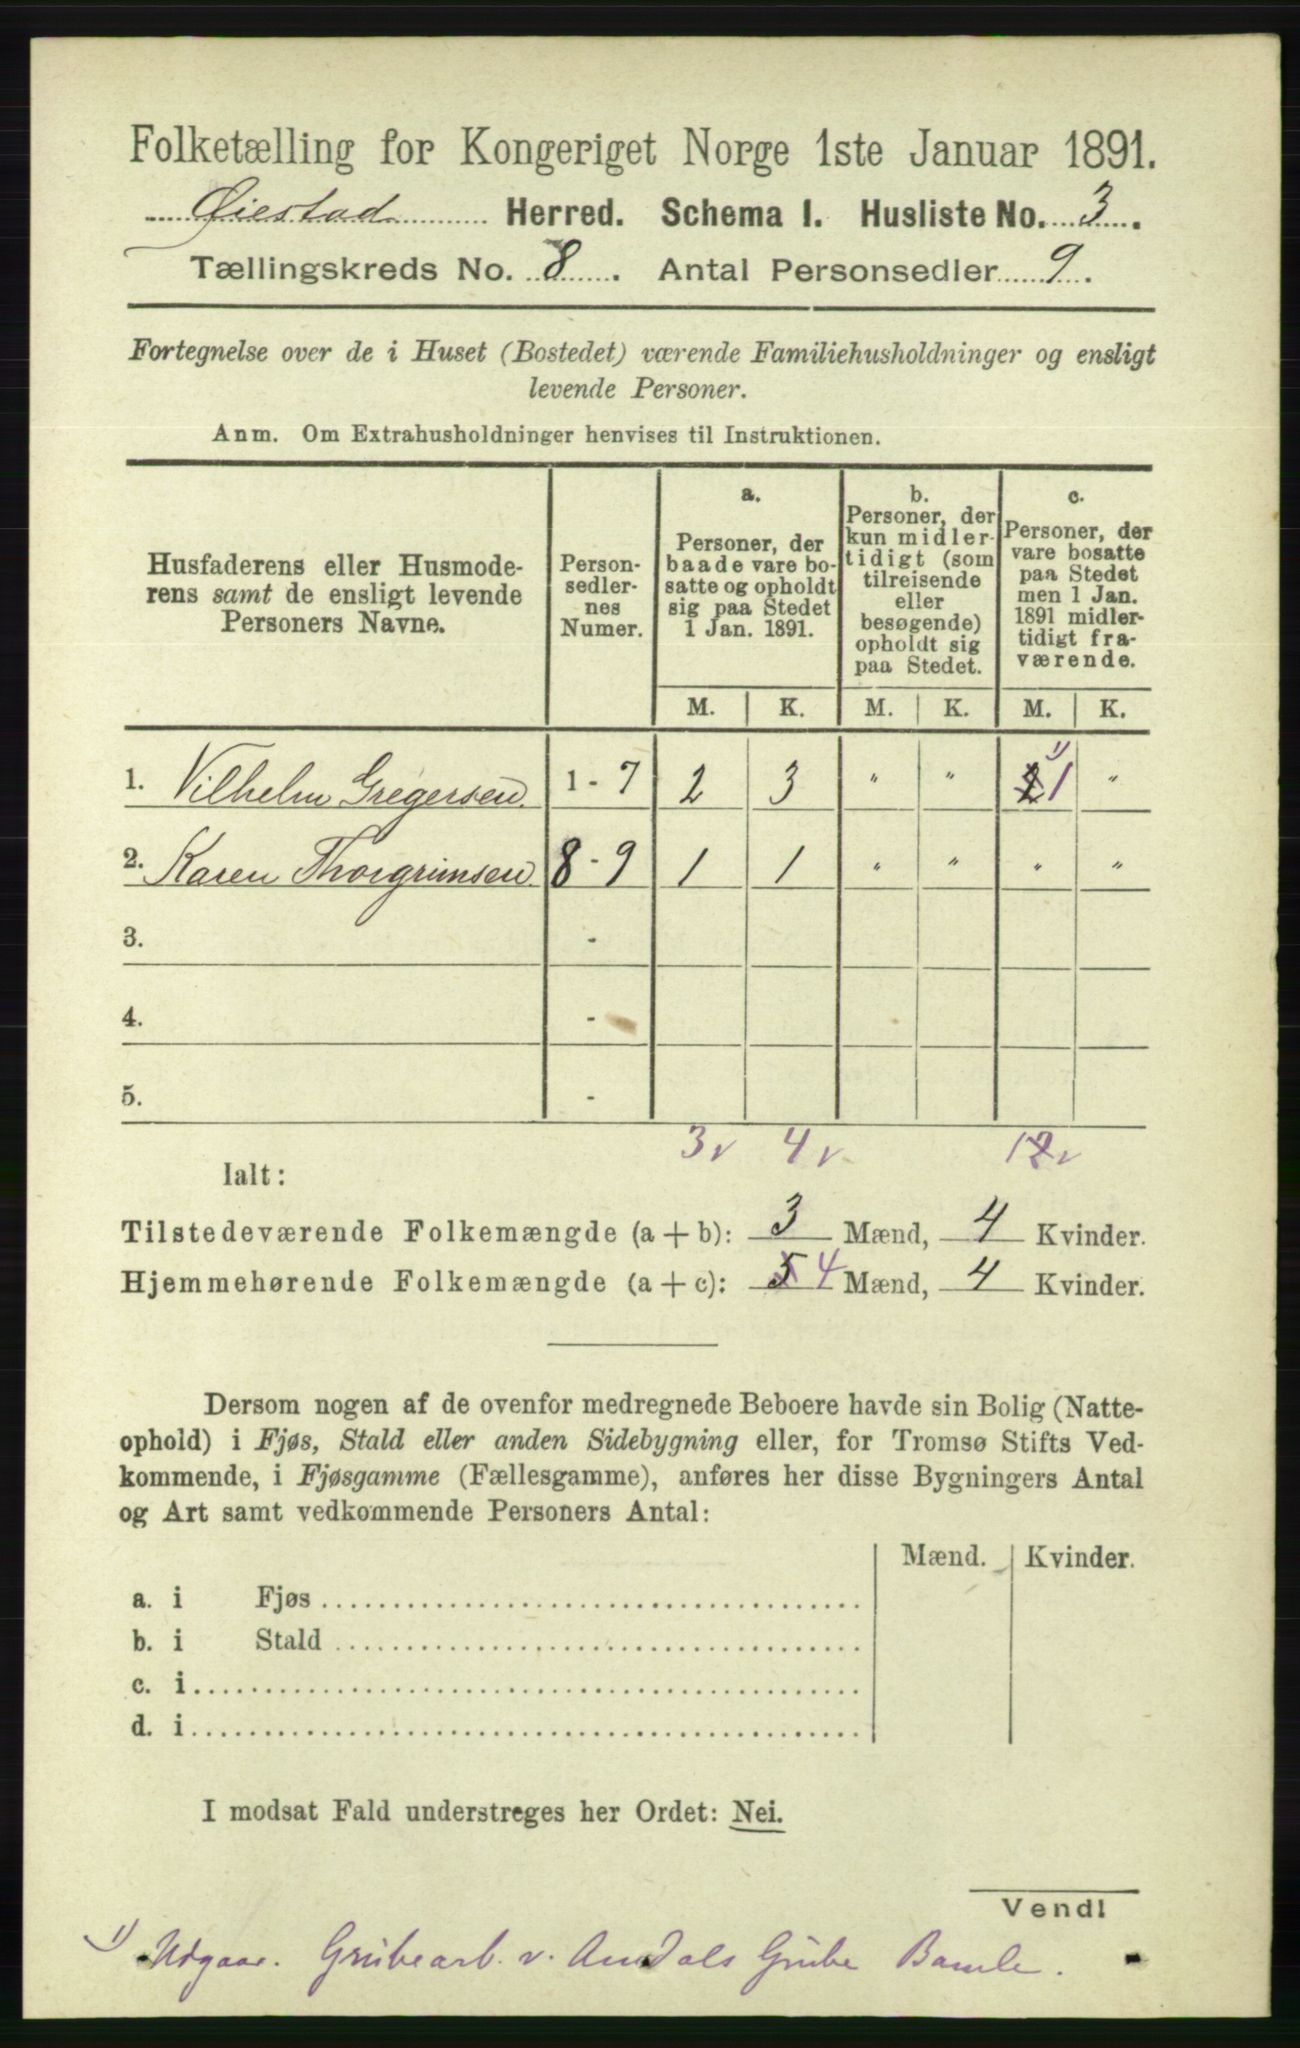 Folketælling for Kongeriget Norge 1ste Januar 1891.
Øiestad Herred. Schema I. Husliste No. 3.
Tællingskreds No. 8. Antal Personsedler 9.
Fortegnelse over de i Huset (Bostedet) værende Familiehusholdninger og ensligt
levende Personer.
Anm. Om Extrahusholdninger henvises til Instruktionen.
Husfaderens eller Husmode-
rens samt de ensligt levende
Personers Navne.
Person-
sedler-
nes
Numer.
a.
Personer, der
baade vare bo-
satte og opholdt
sig paa Stedet
1 Jan. 1891.
b.
Personer, der
kun midler-
tidigt (som
tilreisende
eller
besøgende)
opholdt sig
paa Stedet.
c.
Personer, der
vare bosatte
paa Stedet
men 1 Jan.
1891 midler-
tidigt fra-
værende.
M. K. M. K. M. K.
1. Vilhelm Gregersen 1 - 7 2 3 " " 2 1 1) "
2. Karen Thorgrimsen 8 - 9 1 1 " " " "
3. -
4. -
5. -
3 v 4 v 1 2 v
Ialt:
Tilstedeværende Folkemængde (a + b): 3 Mænd, 4 Kvinder.
Hjemmehørende Folkemængde (a + c): 5 4 Mænd, 4 Kvinder.
Dersom nogen af de ovenfor medregnede Beboere havde sin Bolig (Natte-
ophold) i Fjøs, Stald eller anden Sidebygning eller, for Tromsø Stifts Ved-
kommende, i Fjøsgamme (Fællesgamme), anføres her disse Bygningers Antal
og Art samt vedkommende Personers Antal:
Mænd. Kvinder.
a. i Fjøs
b. i Stald
c. i
d. i
I modsat Fald understreges her Ordet: Nei.
Vend!
1) Udgaar. Grubearb. v. Grube Bamle.